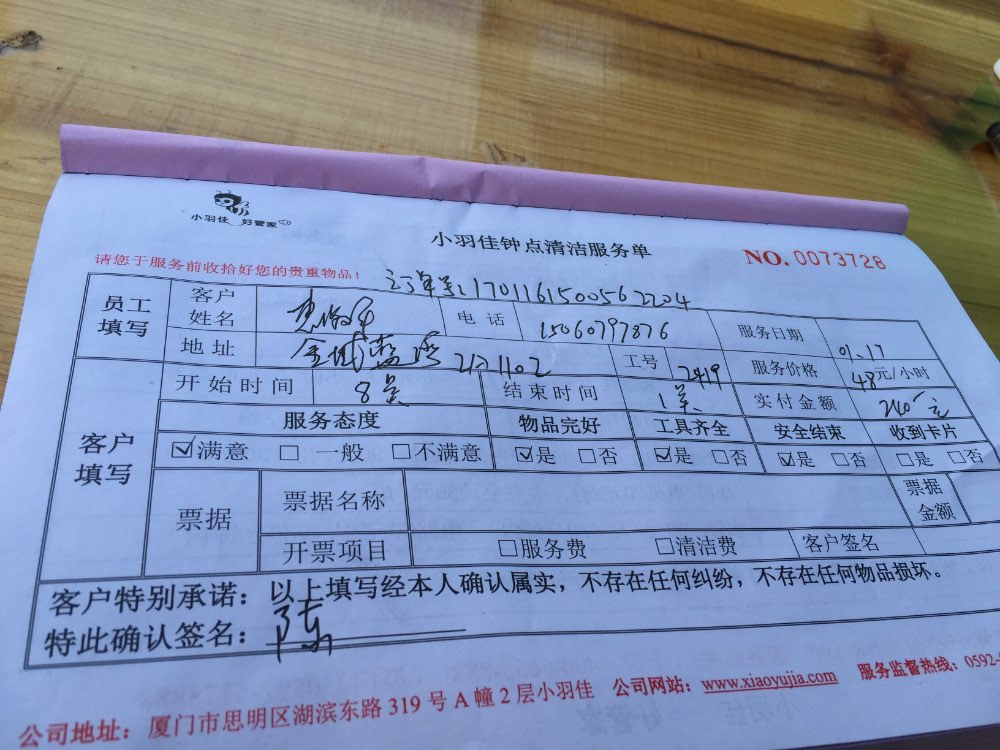 小羽佳 好管家
小羽佳钟点清洁服务单
NO. 0073728
请您于服务前收拾好您的贵重物品!
订单号:1701161500562204
员工填写 客户姓名 电话 15060797876 服务日期 01.17
地址 金域蓝湾 1102 工号 2419 服务价格 48元/小时
客户填写 开始时间 8点 结束时间 1点 实付金额 240元
服务态度 物品完好 工具齐全 安全结束 收到卡片
☑满意 □一般 □不满意 ☑是 □否 ☑是 □否 ☑是 □否 □是 □否
票据 票据名称 票据金额
开票项目 □服务费 □清洁费 客户签名
客户特别承诺:以上填写经本人确认属实,不存在任何纠纷,不存在任何物品损坏。
特此确认签名:陈
公司地址:厦门市思明区湖滨东路319号A幢2层小羽佳 公司网站:www.xiaoyujia.com 服务监督热线:0592-